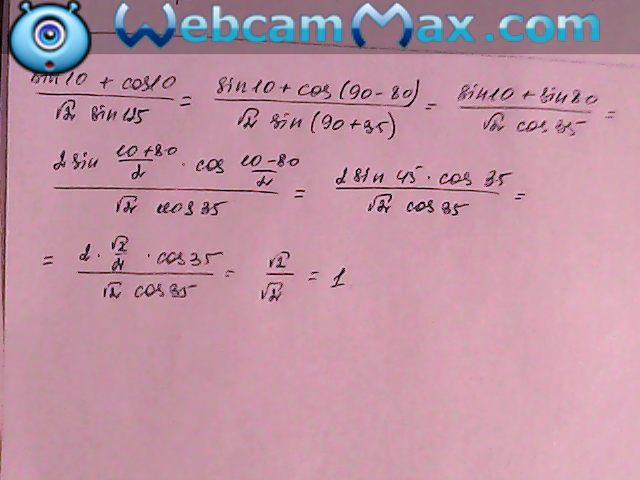 WebcamMax.com
sin10 + cos10 / √2 sin125 = sin10 + cos(90-80) / √2 sin(90+35) = sin10 + sin80 / √2 cos35 =
2 sin 10+80/2 · cos 10-80/2 / √2 cos35 = 2 sin 45 · cos 35 / √2 cos35 =
= 2 · √2/2 · cos35 / √2 cos35 = √2/√2 = 1